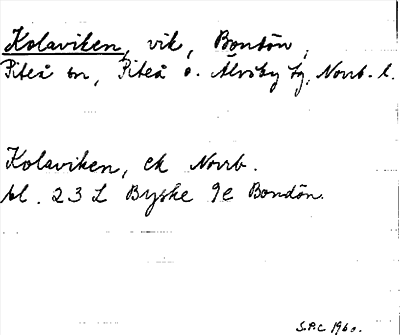 Kolaviken, vik, Bondön,
Piteå sn, Piteå o. Älvsby tg, Norrb. l.
Kolaviken, ek Norrb.
bl. 23 L Byske 9e Bondön.
S.P.C 1960.